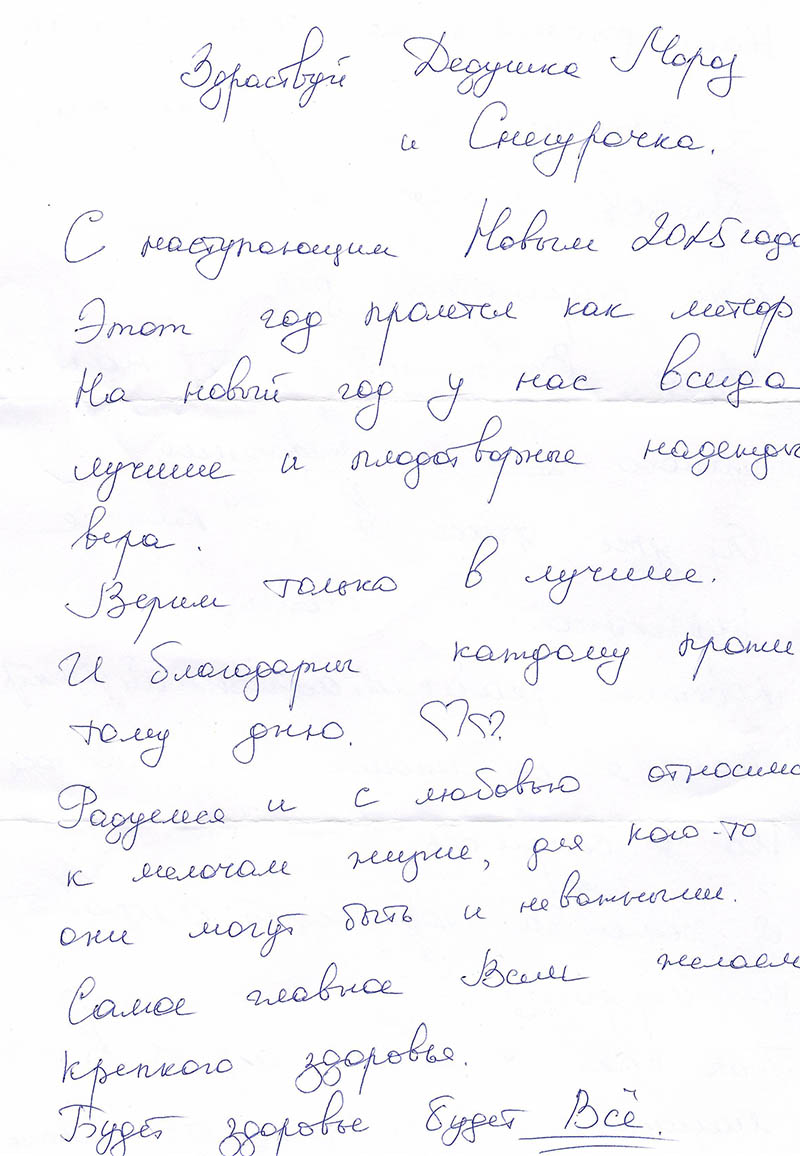 Здраствуй Дедушка Мороз
и Снегурочка.
С наступающим Новым 2025 года
Этот год пролетел как метеор
На новый год у нас всегда
лучшие и плодотворные надежды
вера.
Верим только в лучшие.
И благодарны каждому прожи
тому дню.
Радуемся и с любовью относимс
к мелочам жизни, для кого-то
они могут быть и не важными.
Самое главное Всем желаем
крепкого здоровья.
Будет здоровье будет Всё.